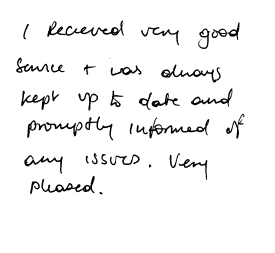 I Recieved very good
Service + was always
kept up to date and
promptly informed of
any issues. Very
pleased.